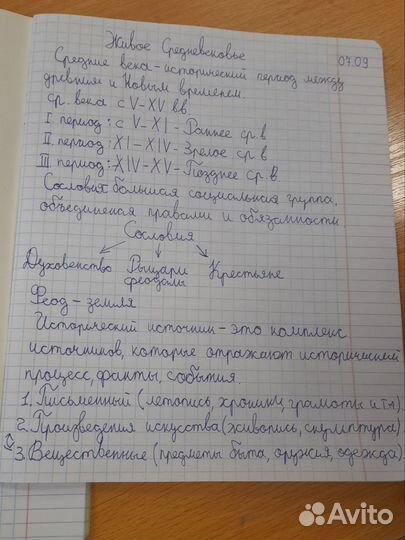 Живое Средневековье
07.09
Средние века - исторический период между
древним и Новым временем.
ср. века с V-XV вв.
I период: с V-XI - Раннее ср.в
II период: XI-XIV - Зрелое ср.в
III период: XIV-XV - Позднее ср.в
Сословия - большая социальная группа,
объединеная правами и обязанности.
Сословия
Духовенство Рыцари Крестьяне
феодалы
Феод - земля
Исторический источник - это комплекс
источников, которые отражают исторический
процесс, факты, события.
1. Письменный (летопись, хроники, грамоты и тп).
2. Произведения искусства (живопись, скульптура)
3. Вещественные (предметы быта, оружия, одежда).
Avito